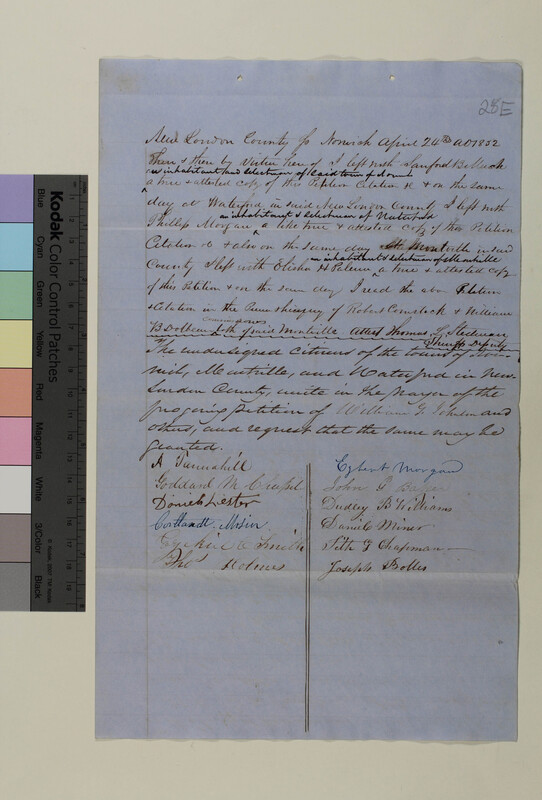 28E
New London County ss Norwich April 24th AD 1852
Then & there by virtue hereof I left with Sanford B
an inhabitant and selectman of said town of Norwich
a true & attested copy of this Petition Citation &c & on the same
day at Waterford in said New London County I left with
an inhabitant & selectman of Waterford
Phillip Morgan a like true & attested copy of this Petition
Citation &c & also on the same day at Montville in said
an inhabitant & selectman of Montville
County I left with Elisha H Palmer a true & attested copy
of this Petition & on the same day I read the above Petition
& Citation in the hearing of Robert Comstock & William
B Dolbeare both of said Montville Attest Thomas Stedman
Sheriff's Deputy
The undersigned Citizens of the towns of Nor-
wich, Montville, and Waterford in New-
London County, unite in the prayer of the
foregoing petition of William G Johnson and
others, and request that the same may be
granted.
A Tannahill
Goddard M. Chapel
Daniel Lester
Cortlandt
Smith
Holmes
Egbert Morgan
John G
Dudley B Williams
Daniel Miner
Seth G Chapman
Joseph Bolles
Kodak Color Control Patches
Blue
Cyan
Green
Yellow
Red
Magenta
White
3/Color
Black